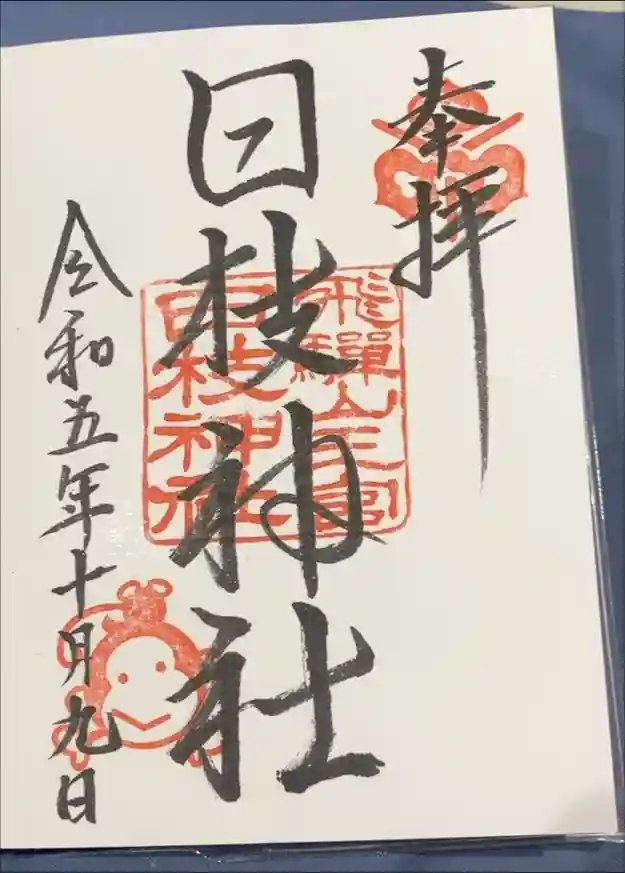 奉拝
飛騨山王宮
日枝神社
日枝神社
令和五年十月九日